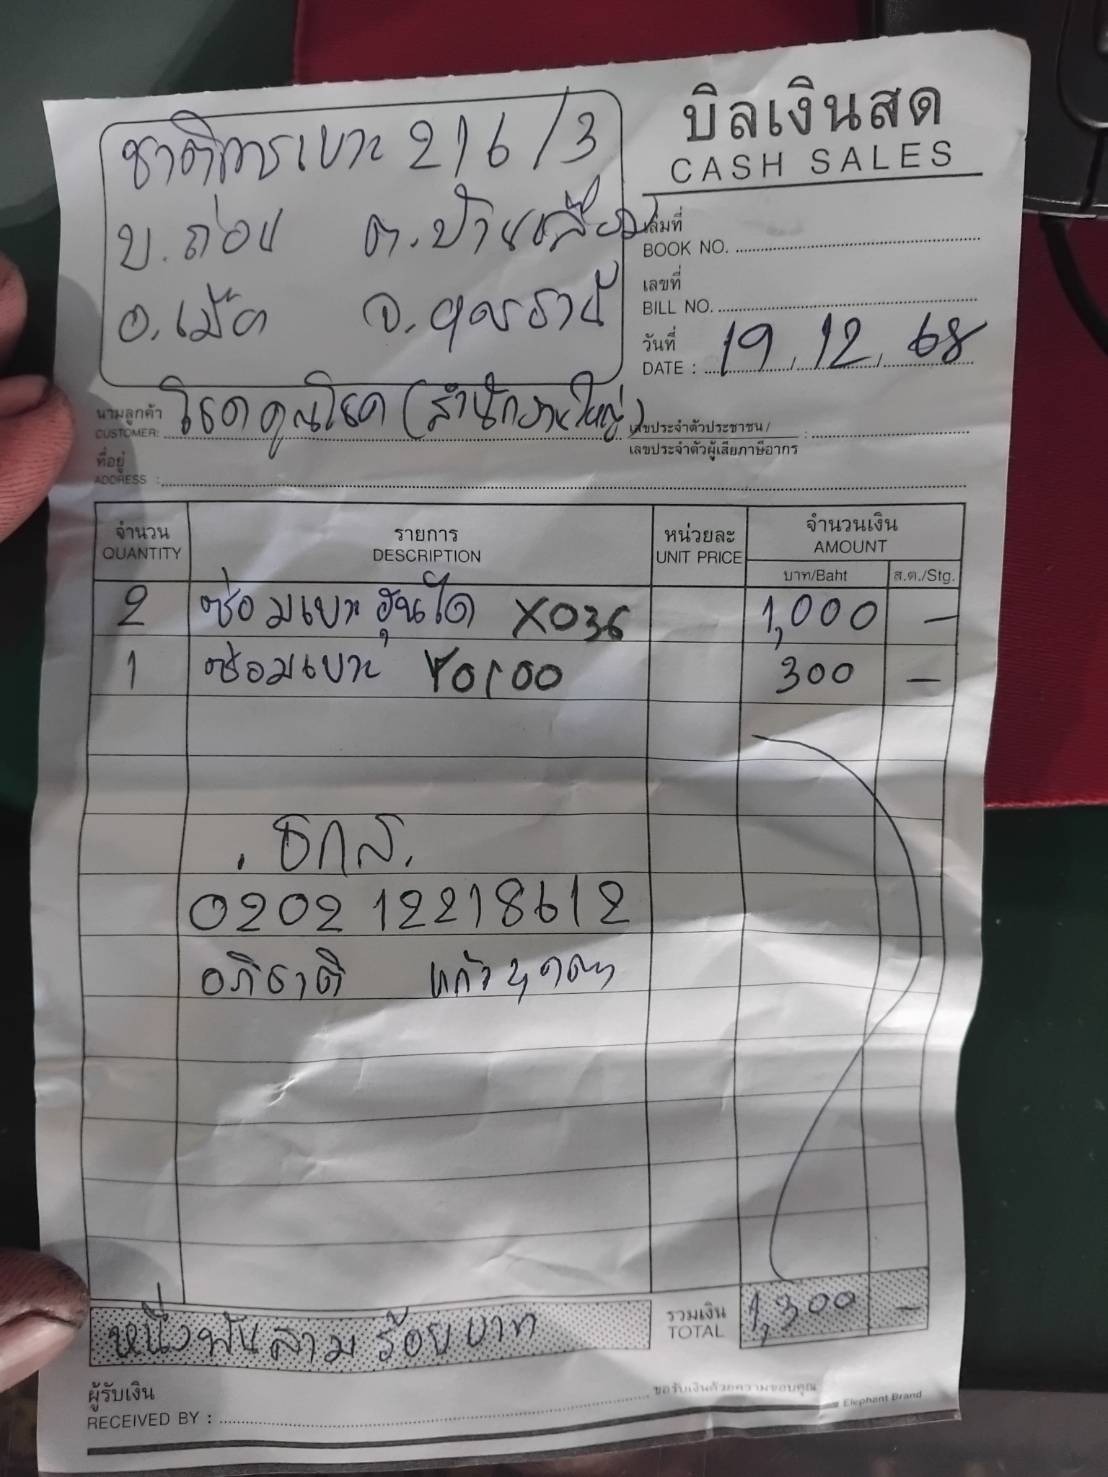 บิลเงินสด
CASH SALES
ชาติการเบาะ 216/3
บ.ถ่อน ต.บ้านเลื่อม
อ.เมือง จ.อุดรธานี
เล่มที่
BOOK NO.
เลขที่
BILL NO.
วันที่
DATE : 19 / 12 / 68
นามลูกค้า
CUSTOMER: โชคคูณโชค (สำนักงานใหญ่)
เลขประจำตัวประชาชน /
เลขประจำตัวผู้เสียภาษีอากร :
ที่อยู่
ADDRESS :
จำนวน รายการ หน่วยละ จำนวนเงิน
QUANTITY DESCRIPTION UNIT PRICE AMOUNT
บาท/Baht ส.ต./Stg.
2 ซ่อมเบาะฮุนได X036 1,000 –
1 ซ่อมเบาะ 300 –
. ธกส.
0202 12218612
อภิชาติ
หนึ่งพันสามร้อยบาท
รวมเงิน
TOTAL 1,300 –
ผู้รับเงิน
RECEIVED BY :
ขอรับเงินด้วยความขอบคุณ
Elephant Brand